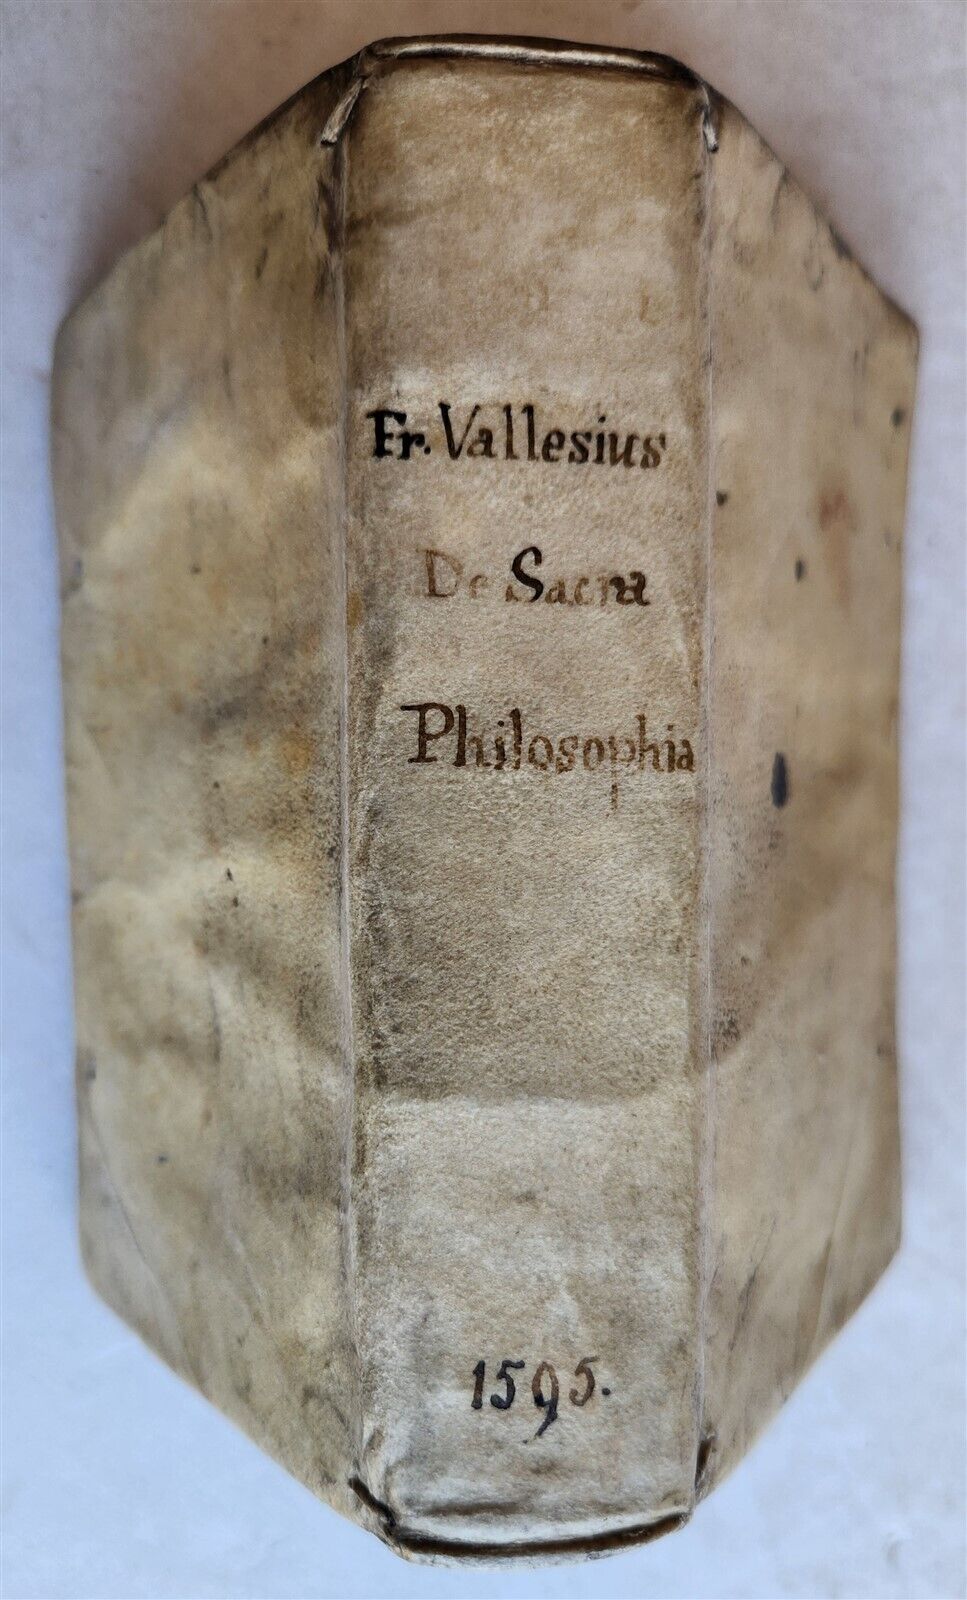 Fr. Vallesius
De Sacra
Philosophia
1595.